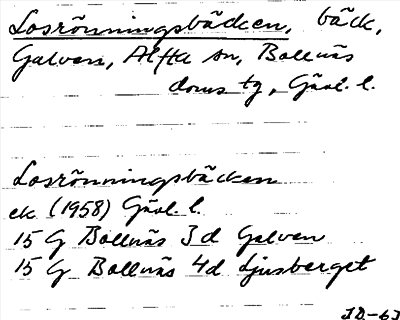 Losrönningsbäcken, bäck,
Galven, Alfta sn, Bollnäs
doms tg, Gävl. l.
Losrönningsbäcken
ek (1958) Gävl. l.
15 G Bollnäs 3d Galven
15 G Bollnäs 4d Ljusberget
JD-63